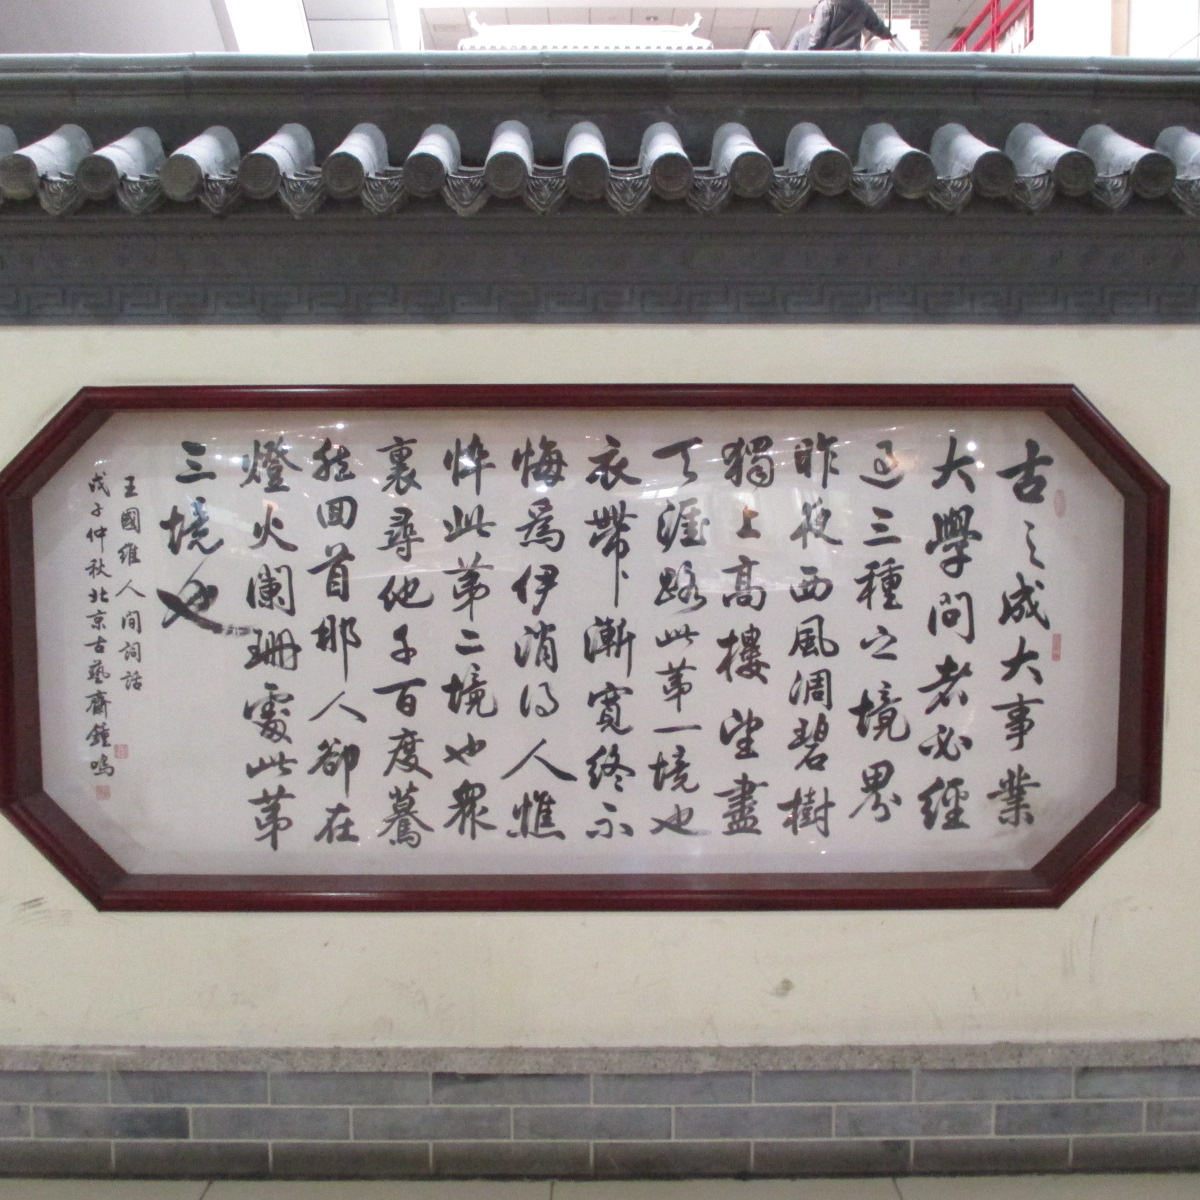 古之成大事業
大學問者必經
過三種之境界
昨夜西風凋碧樹
獨上高樓望盡
天涯路此第一境也
衣帶漸寬終不
悔爲伊消得人憔
悴此第二境也眾
裏尋他千百度驀
然回首那人卻在
燈火闌珊處此第
三境也
王國維人间詞話
戊子仲秋北京古藝齋鐘鳴